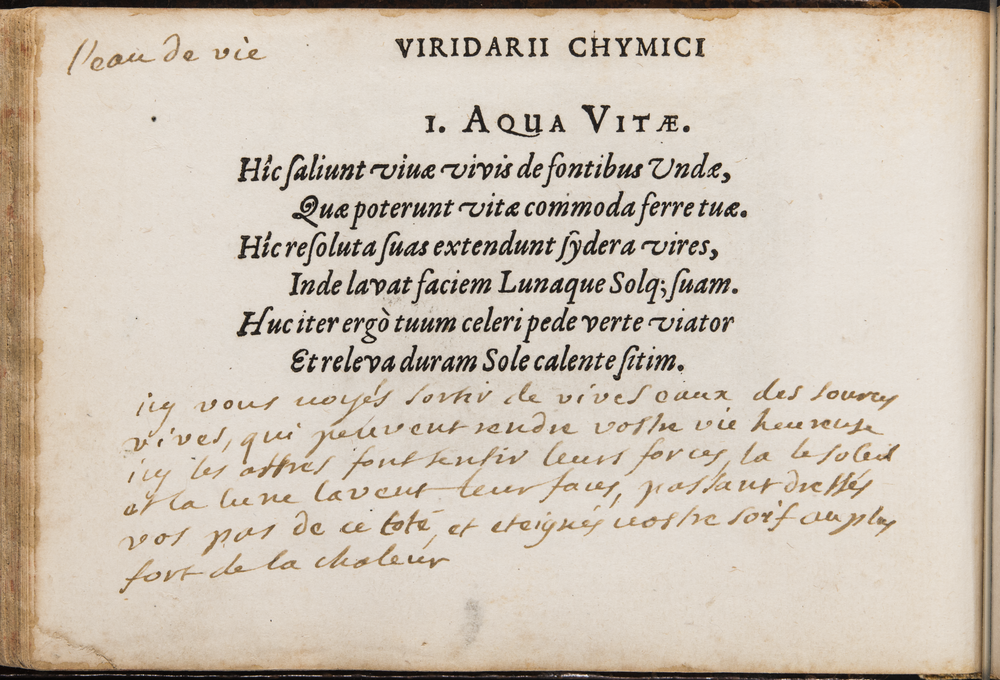 l'eau de vie
VIRIDARII CHYMICI
1. AQUA VITÆ.
Hîc ſaliunt viuæ vivis de fontibus Undæ,
Quæ poterunt vitæ commoda ferre tuæ.
Hîc reſoluta ſuas extendunt ſydera vires,
Inde lavat faciem Lunaque Solq; ſuam.
Huc iter ergò tuum celeri pede verte viator
Et releva duram Sole calente ſitim.
icy vous voyés sortir de vives eaux des sources
vives, qui peuvent rendre vostre vie heureuse
icy les astres font sentir leurs forces, la le soleil
et la lune lavent leur faces, passant dressés
vos pas de ce coté, et eteignés vostre soif au plus
fort de la chaleur